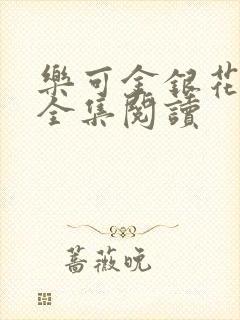 樂可金銀花
全集閱讀
薔薇晚